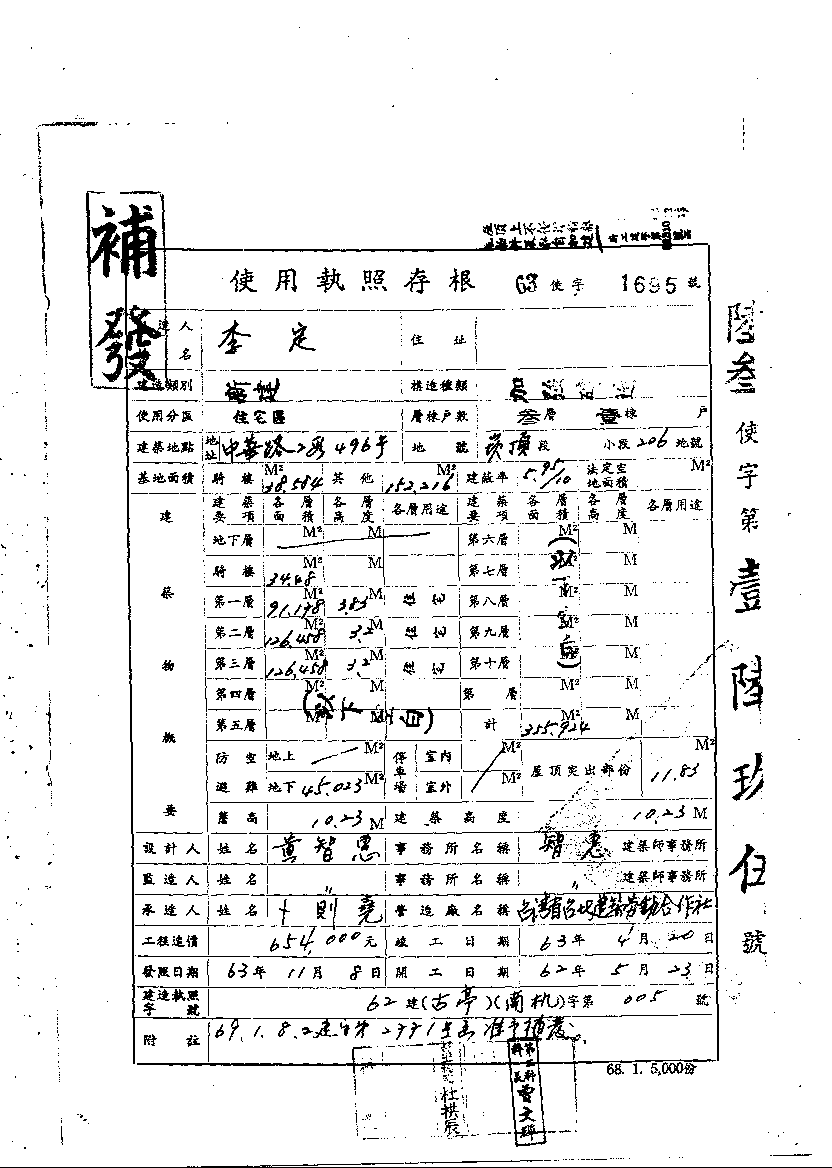 補發
使用執照存根 63 使字 1695 號
造人 李定 住址
名
建造類別 構造種類
使用分區 住宅區 層棟戶數 叁層 壹棟 戶
建築地點 地址 中華路2段496號 地號 崁頂段 小段206地號
基地面積 騎樓 38.584 M² 其他 152.216 M² 建蔽率 5.95/10 法定空地面積 M²
建築物概要
建築要項 各層面積 各層高度 各層用途 建築要項 各層面積 各層高度 各層用途
地下層 M² M 第六層 M² M
騎樓 34.48 M² M 第七層 M² M
第一層 91.198 M² 3.83 M 住宅 第八層 M² M
第二層 126.458 M² 3.2 M 住宅 第九層 M² M
第三層 126.458 M² 3.2 M 住宅 第十層 M² M
第四層 M² M 第 層 M² M
第五層 M² M 計 355.924 M² M
(以下空白)
(以下空白)
防空避難 地上 M² 停車場 室內 M² 屋頂突出部份 11.83 M²
地下 45.023 M² 室外 M²
簷高 10.23 M 建築高度 10.23 M
設計人 姓名 黃智惠 事務所名稱 智惠 建築師事務所
監造人 姓名 〃 事務所名稱 〃 建築師事務所
承造人 姓名 卜則堯 營造廠名稱 台灣省台北建築勞動合作社
工程造價 654,000元 竣工日期 63年4月20日
發照日期 63年11月8日 開工日期 62年5月23日
建造執照字號 62建(古亭)(南机)字第005號
附註 69.1.8.
准予補發。
68. 1. 5,000份
第二科
科長
曹文琿
杜拱辰
陸叁使字第壹陸玖伍號